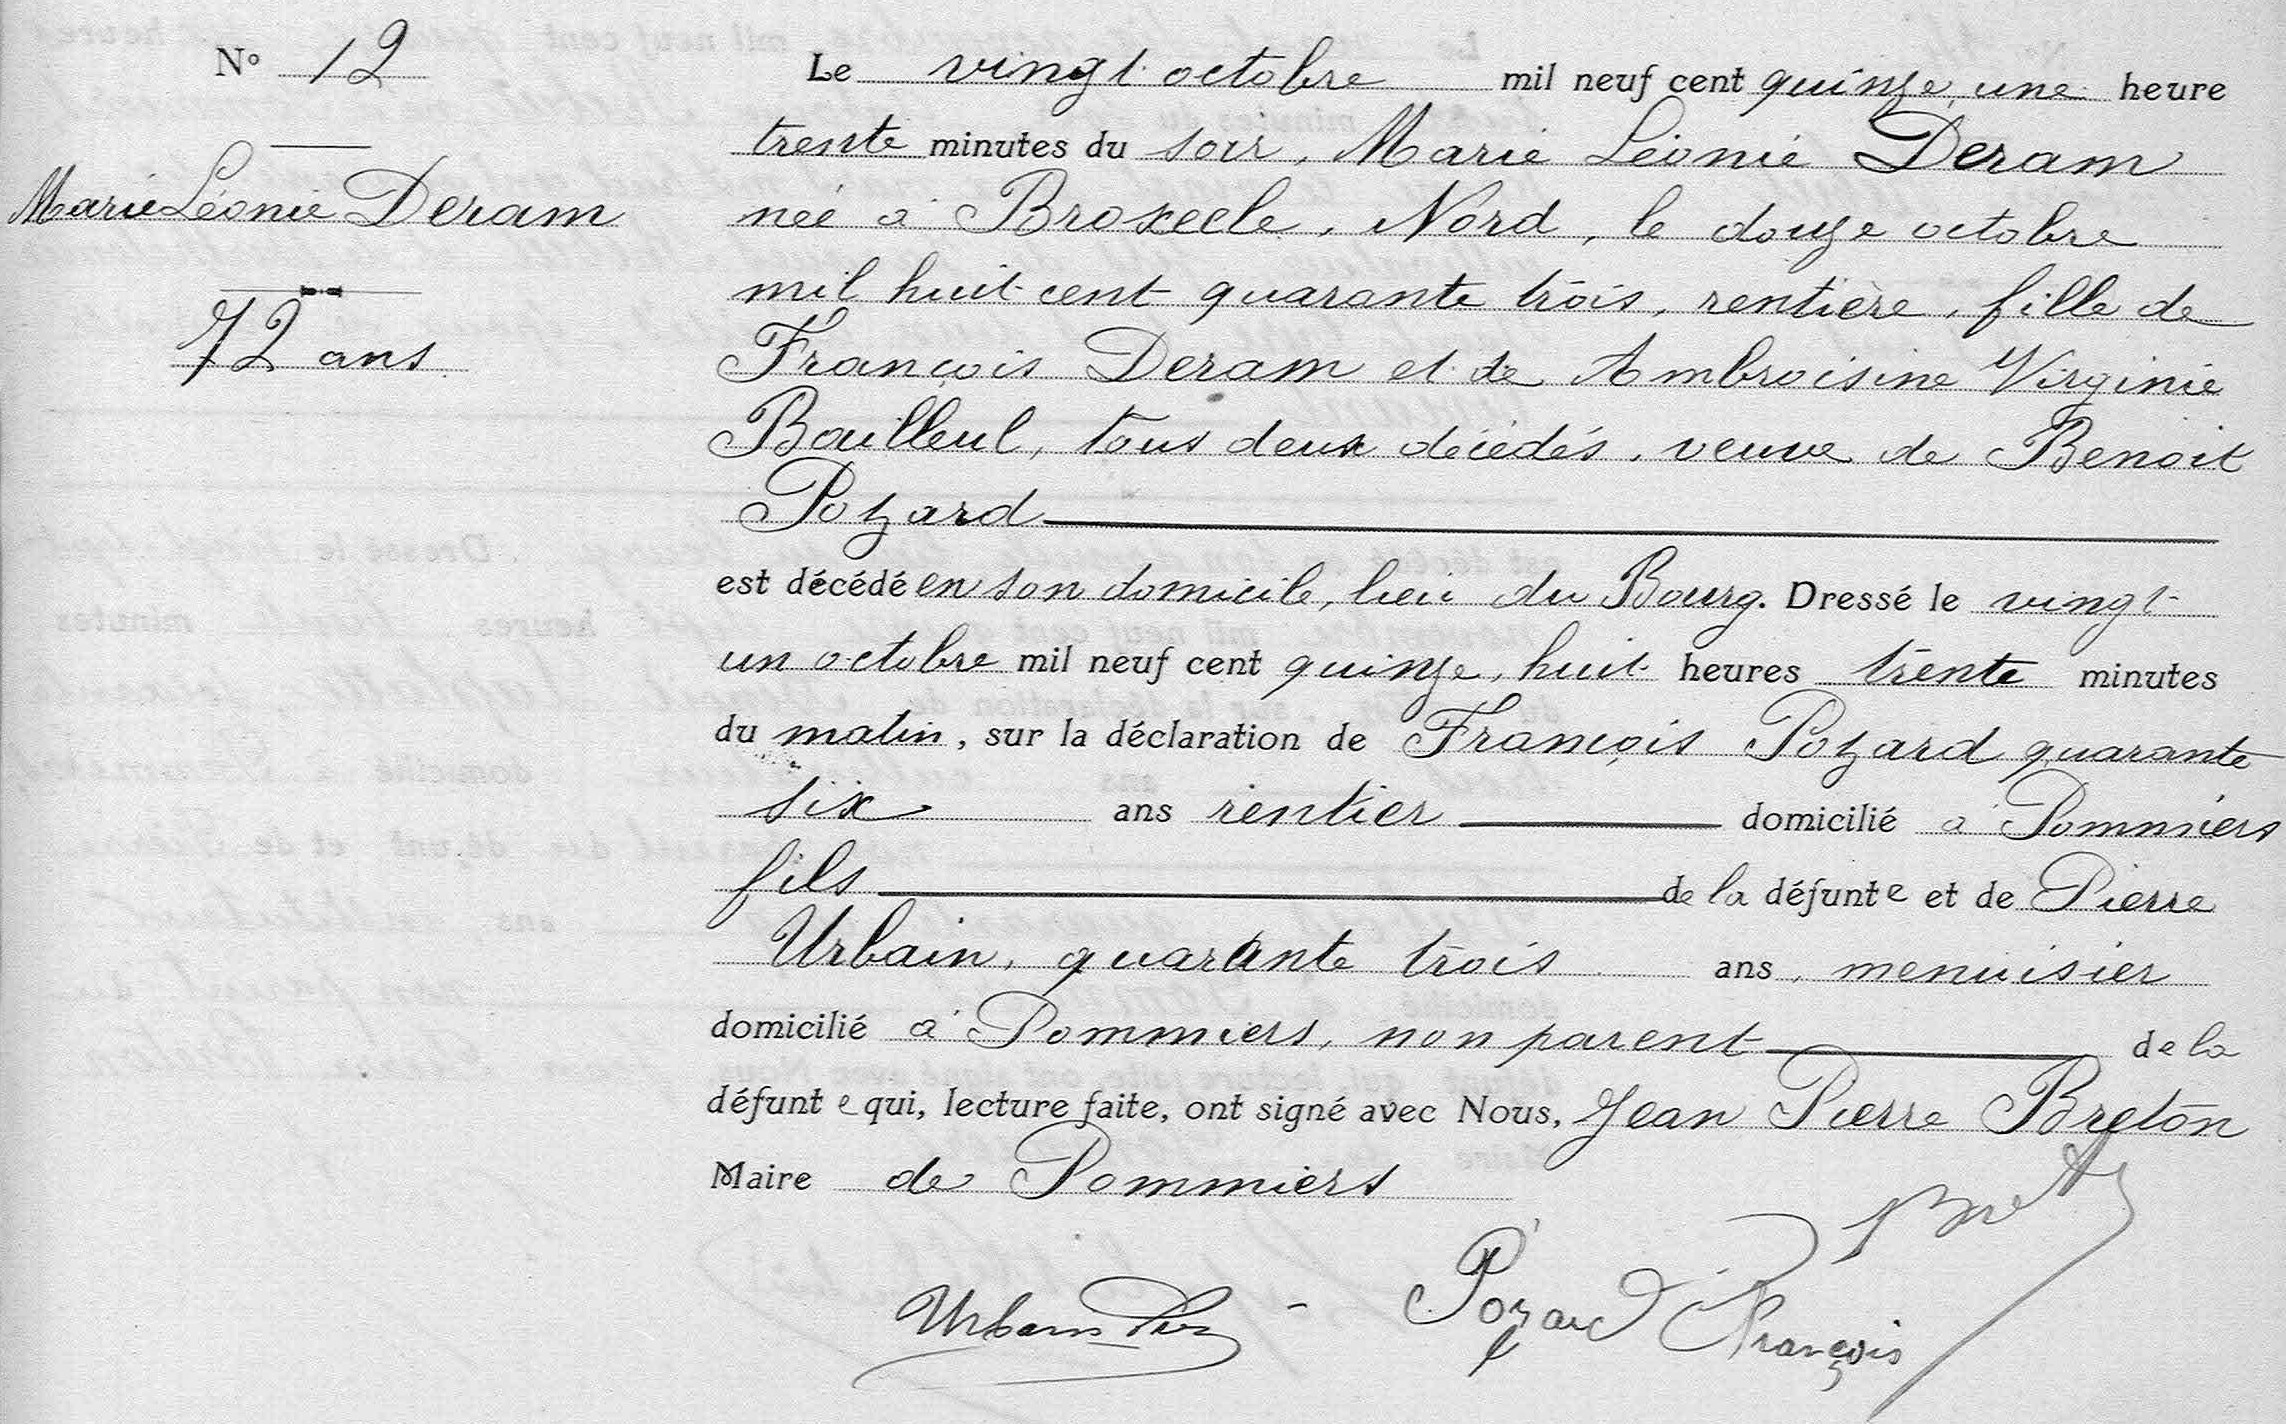 N° 12
Le vingt octobre mil neuf cent quinze, une heure
trente minutes du soir, Marie Léonie Deram
Marie Léonie Deram
née à Broxeele, Nord, le douze octobre
mil huit cent quarante trois, rentière, fille de
72 ans
François Deram et de Ambroisine Virginie
Bailleul, tous deux décédés, veuve de Benoit
Pozard
est décédé en son domicile, lieu du Bourg. Dressé le vingt
un octobre mil neuf cent quinze, huit heures trente minutes
du matin, sur la déclaration de François Pozard quarante
six ans rentier domicilié à Pommiers
fils de la défunte et de Pierre
Urbain, quarante trois ans, menuisier
domicilié à Pommiers, non parent de la
défunte qui, lecture faite, ont signé avec Nous, Jean Pierre Breton
Maire de Pommiers
Urbain
Pozard François